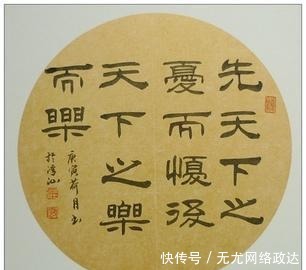 先天下之
憂而懮後
天下之樂
而樂
庚寅荷月書
快传号/无尤网络政达